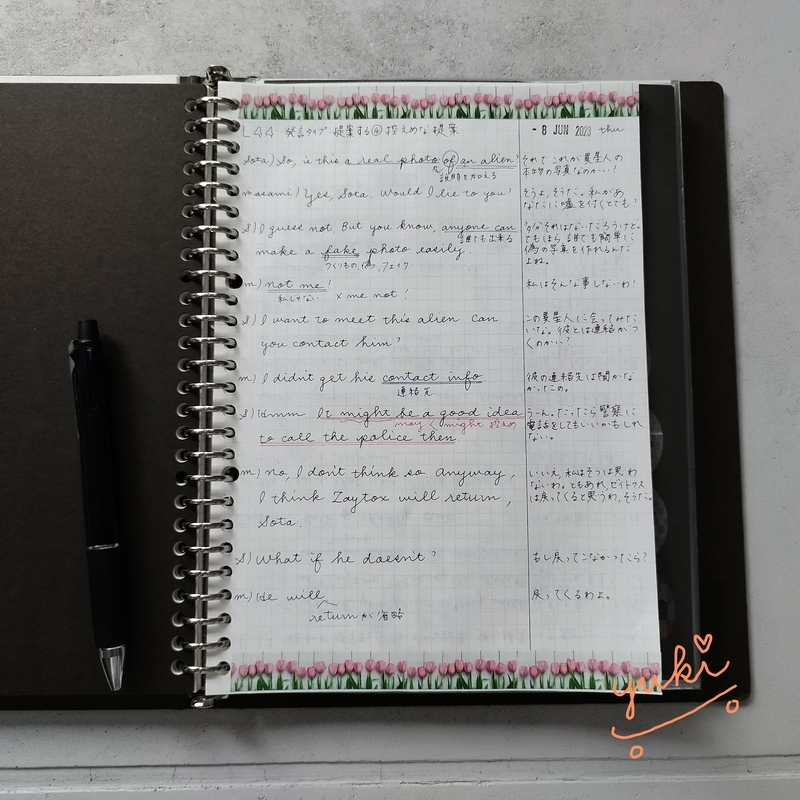 L44 発言タイプ 提案する④ 控えめな提案
- 8 JUN 2023 thu
Sota) So, is this a real photo of an alien?
説明を加える
それでこれが異星人の
本物の写真なのかい?
masami) Yes, Sota. Would I lie to you?
そうよ、そうた。私があ
なたに嘘を付くとでも?
S) I guess not. But you know, anyone can
誰でも出来る
make a fake photo easily.
つくりもの, 偽, フェイク
多分それはないだろうけど。
でもほら、誰でも簡単に
偽の写真を作れるんだ
よね。
m) not me!
私じゃない × me not!
私はそんな事しないわ!
S) I want to meet this alien can
you contact him?
この異星人に会ってみた
いな。彼とは連絡がつ
くのかい?
m) I didn't get his contact info
連絡先
彼の連絡先は聞かな
かったの。
S) Hmm It might be a good idea
may < might 控えめ
to call the police then
うーん。だったら警察に
電話をしてもいいかもしれ
ない。
m) no, I don't think so anyway,
I think Zaytox will return,
Sota.
いいえ、私はそうは思わ
ないわ。ともあれ、ゼイトクス
は戻ってくると思うわ、そうた。
S) What if he doesn't?
もし戻ってこなかったら?
m) He will
return が省略
戻ってくるわよ。
yuki